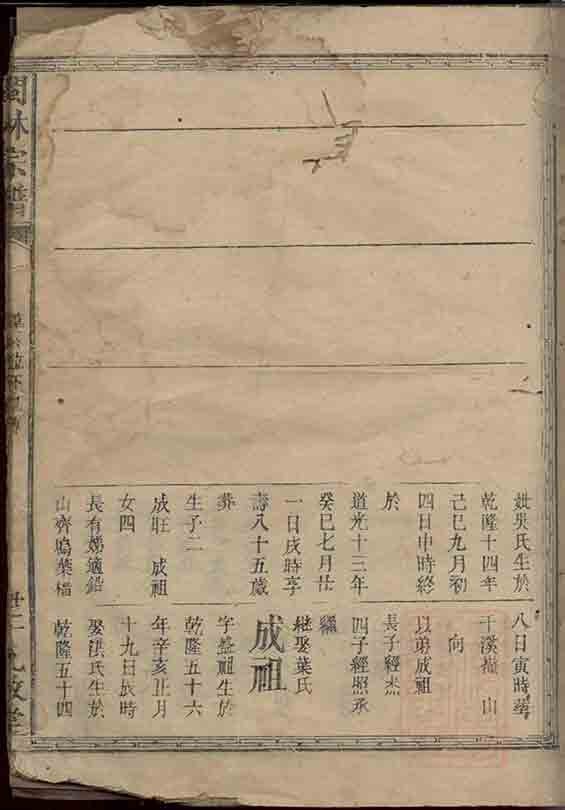 妣吳氏生於
乾隆十四年
己巳九月初
四日申時終
於
道光十三年
癸巳七月廿
一日戌時享
壽八十五歲
葬
生子二
成旺 成祖
女四
長有娣適鉛
山齊鳴葉檔
八日寅時葬
干溪 山
向
以弟成祖
長子經杰
四子經照承
繼
繼娶葉氏
成祖
字益祖生於
乾隆五十六
年辛亥正月
十九日戌時
娶洪氏生於
乾隆五十四
閩林宗譜